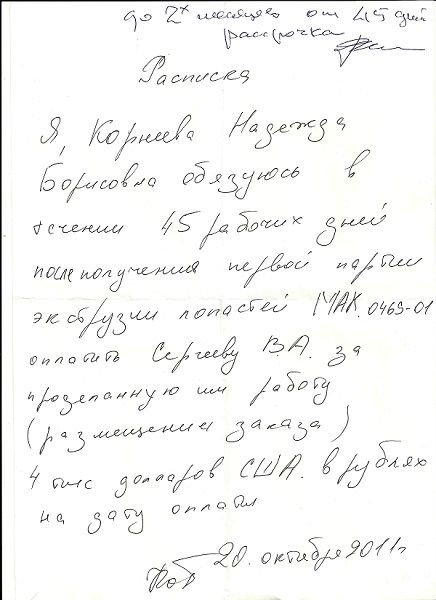 до 2х месяцев от 45 дней
рассрочка
Расписка
Я, Корнеева Надежда
Борисовна обязуюсь в
течении 45 рабочих дней
после получения первой партии
экструзии лопастей МАК.0469-01
оплатить Сергееву В.А. за
проделанную им работу
(размещении заказа)
4 тыс долларов США. в рублях
на дату оплаты
20. октября 2011г